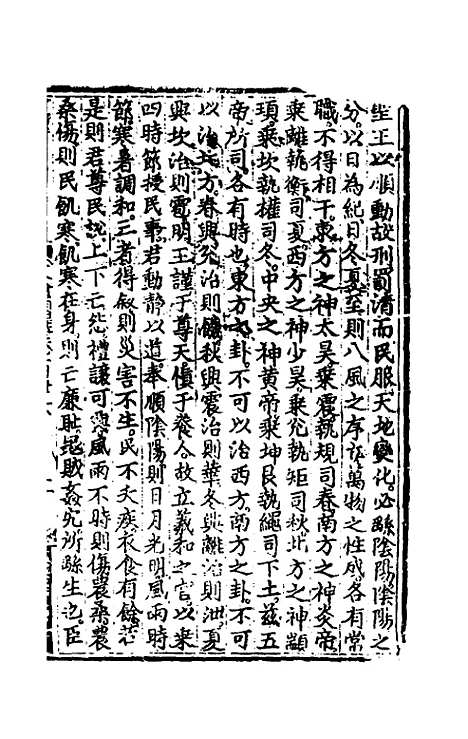 聖王以順動故刑罰清而民服天地變化必繇陰陽陰陽之
分以日為紀日冬夏至則八風之序立萬物之性成各有常
職不得相干東方之神太昊乗震執規司春南方之神炎帝
乗離執衡司夏西方之神少昊乗兊執矩司秋北方之神顓
頊乗坎執權司冬中央之神黃帝乗坤艮執繩司下土茲五
帝所司各有時也東方之卦不可以治西方南方之卦不可
以治北方春興兊治則饑秋興震治則華冬興離治則泄夏
興坎治則雹明王謹于尊天慎于養人故立羲和之官以乗
四時節授民事君動靜以道奉順陰陽則日月光明風雨時
節寒暑調和三者得叙則災害不生民不夭疾衣食有餘若
是則君尊民說上下亡怨禮讓可興風雨不時則傷農桑農
桑傷則民飢寒飢寒在身則亡廉恥冦賊姦宄所繇生也臣